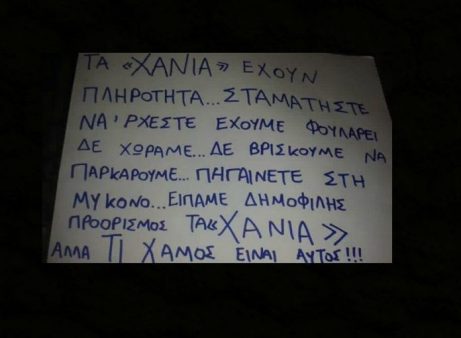 ΤΑ «ΧΑΝΙΑ» ΕΧΟΥΝ
ΠΛΗΡΟΤΗΤΑ...ΣΤΑΜΑΤΗΣΤΕ
ΝΑ'ΡΧΕΣΤΕ ΕΧΟΥΜΕ ΦΟΥΛΑΡΕΙ
ΔΕ ΧΩΡΑΜΕ...ΔΕ ΒΡΙΣΚΟΥΜΕ ΝΑ
ΠΑΡΚΑΡΟΥΜΕ...ΠΗΓΑΙΝΕΤΕ ΣΤΗ
ΜΥΚΟΝΟ...ΕΙΠΑΜΕ ΔΗΜΟΦΙΛΗΣ
ΠΡΟΟΡΙΣΜΟΣ ΤΑ«ΧΑΝΙΑ»
ΑΛΛΑ ΤΙ ΧΑΜΟΣ ΕΙΝΑΙ ΑΥΤΟΣ!!!